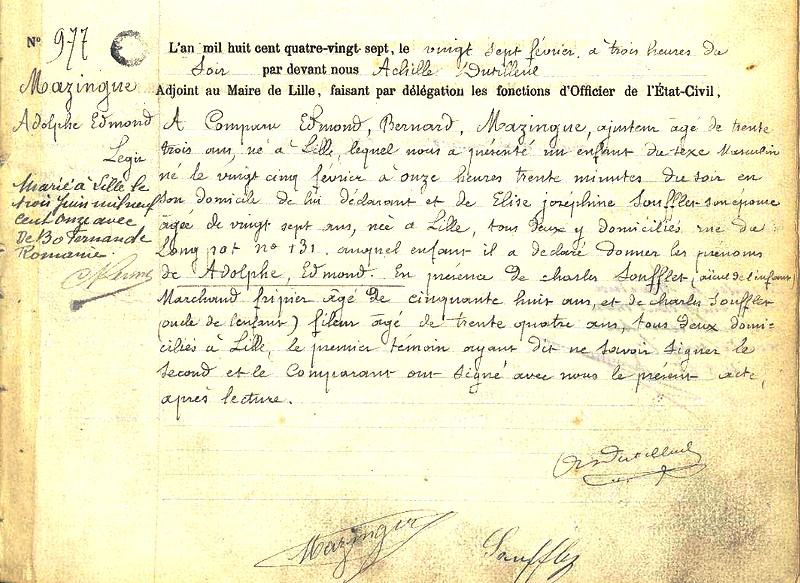 N° 977
Mazingue
Adolphe Edmond
Legir
Marié à Lille le
trois juin mil neuf
cent onze avec
De Bo Fernande
Romanie.
L'an mil huit cent quatre-vingt sept, le vingt sept février, à trois heures du
Soir par devant nous Achille Dutilleul
Adjoint au Maire de Lille, faisant par délégation les fonctions d'Officier de l'État-Civil,
A Comparu Edmond, Bernard, Mazingue, ajusteur âgé de trente
trois ans, né à Lille, lequel nous a présenté un enfant du sexe Masculin
né le vingt cinq février à onze heures trente minutes du soir en
son domicile de lui déclarant et de Elise joséphine Soufflet son épouse
âgée de vingt sept ans, née à Lille, tous deux y domiciliés rue du
Long pot n° 131. auquel enfant il a declaré donner les prénoms
de Adolphe, Edmond. En présence de charles Soufflet, (aïeul de l'enfant)
Marchand fripier âgé de cinquante huit ans, et de charles Soufflet
(oncle de l'enfant) fileur âgé de trente quatre ans, tous deux domi-
ciliés à Lille, le premier témoin ayant dit ne savoir signer le
second et le Comparant ont signé avec nous le présent acte,
après lecture.
Dutilleul
Mazingue
Soufflet